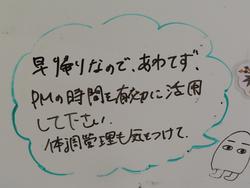 早帰りなので、あわてず、
PMの時間を有効に活用
して下さい。
体調管理も気をつけて。